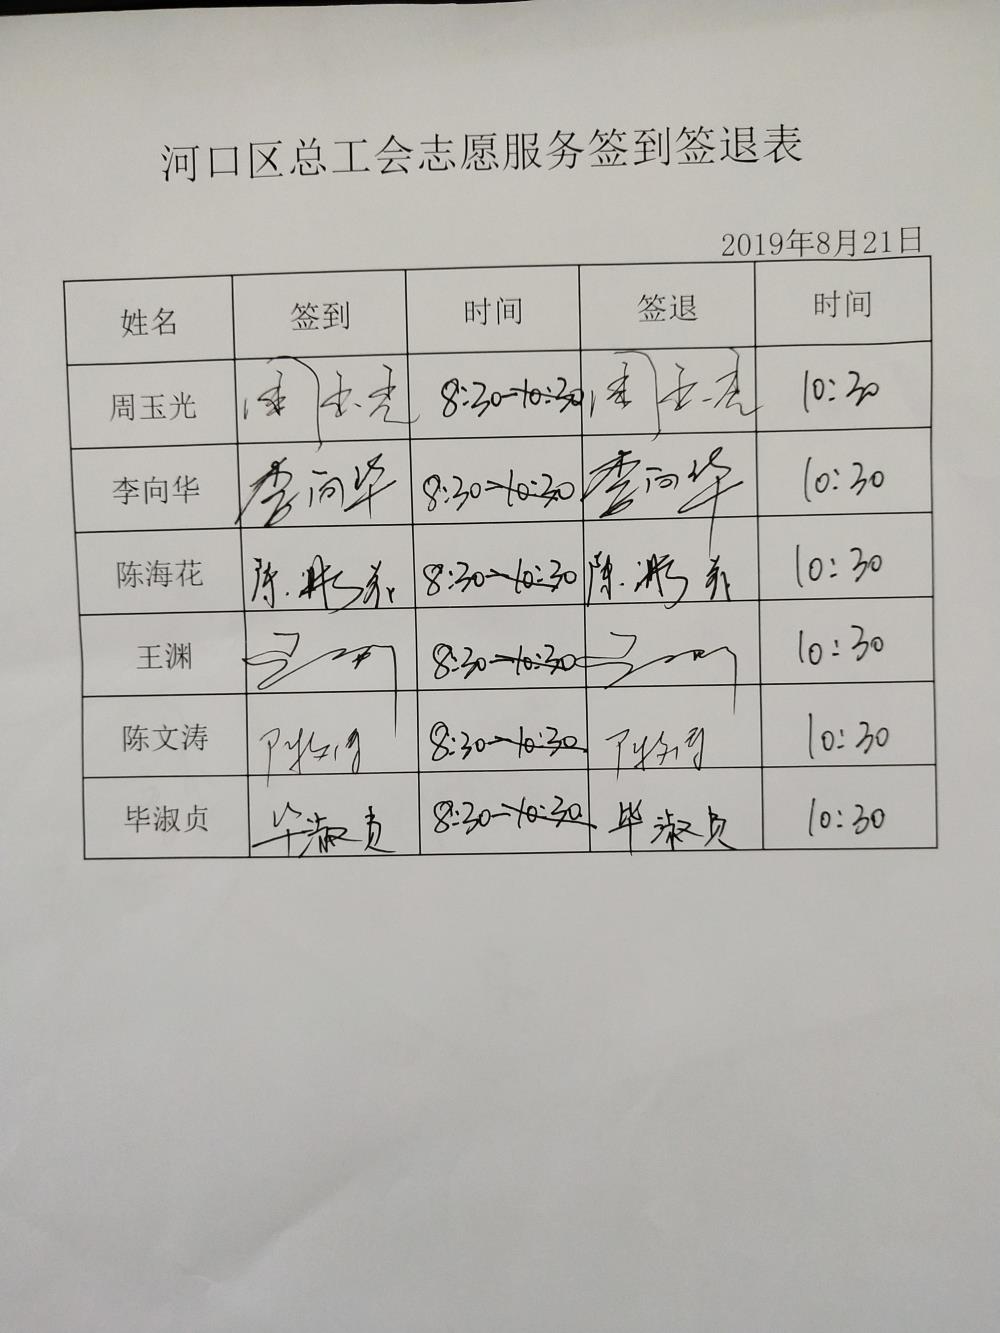 河口区总工会志愿服务签到签退表
2019年8月21日
姓名 签到 时间 签退 时间
周玉光 周玉光 8:30-10:30 周玉光 10:30
李向华 李向华 8:30-10:30 李向华 10:30
陈海花 陈海花 8:30-10:30 陈海花 10:30
王渊 王渊 8:30-10:30 王渊 10:30
陈文涛 陈文涛 8:30-10:30 陈文涛 10:30
毕淑贞 毕淑贞 8:30-10:30 毕淑贞 10:30